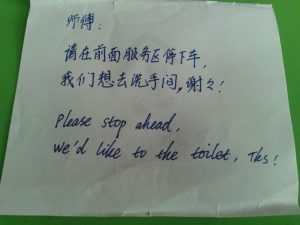 师傅：
请在前面服务区停下车，
我们想去洗手间，谢々！
Please stop ahead,
We'd like to the toilet, Tks!